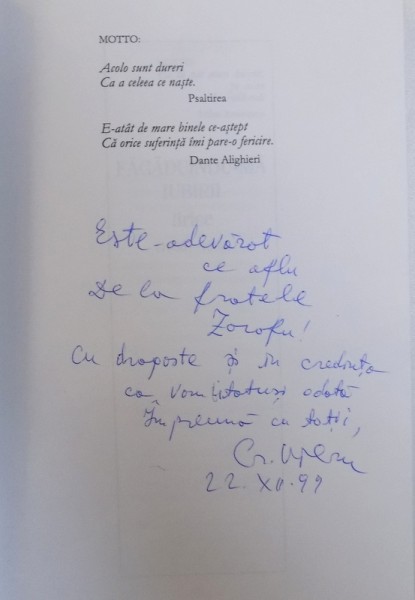 MOTTO:
Acolo sunt dureri
Ca a celeea ce naște.
Psaltirea
E-atât de mare binele ce-aștept
Că orice suferință îmi pare-o fericire.
Dante Alighieri
Este-adevărat
ce aflu
De la fratele
Cu dragoste și în credința
ca vom odată
Împreună cu toții,
Cr.
22. XII. 99